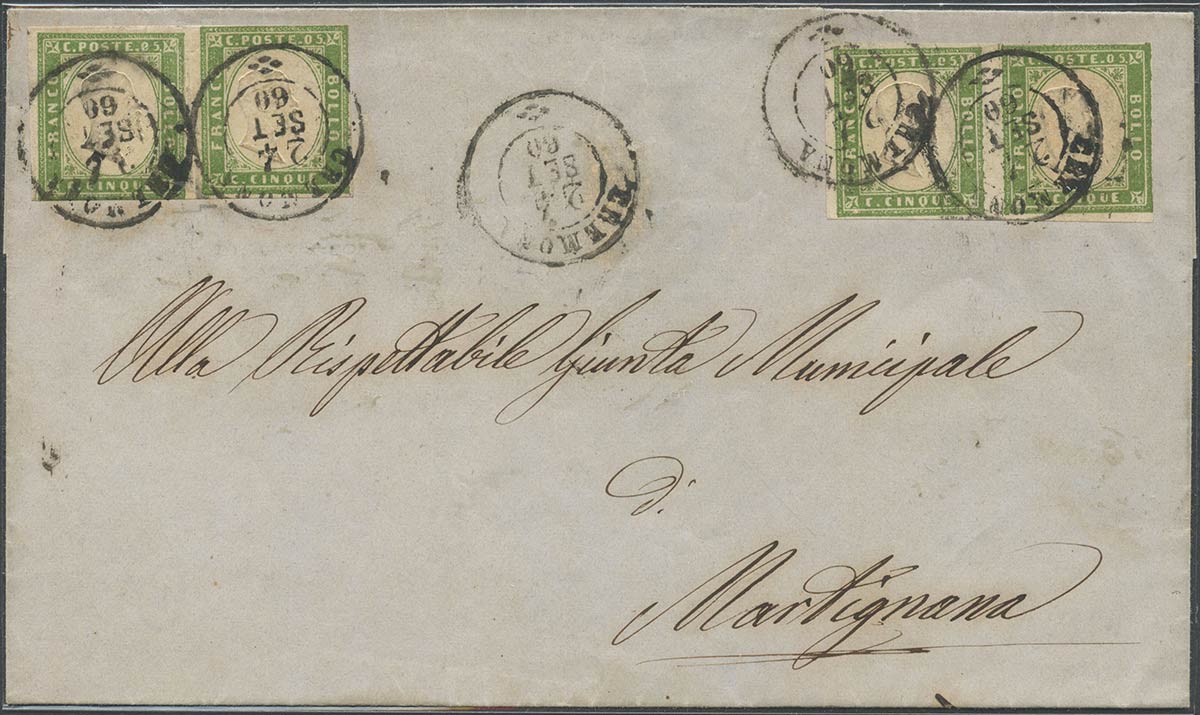 C. POSTE. 05
FRANCO
BOLLO
C. CINQUE
C. POSTE. 05
FRANCO
BOLLO
C. CINQUE
C. POSTE. 05
FRANCO
BOLLO
C. CINQUE
C. POSTE. 05
FRANCO
BOLLO
CINQUE
CREMONA
24
SET
60
CREMONA
24
SET
60
CREMONA
24
SET
60
CREMONA
SET
60
CREMONA
SET
60
Alla Rispettabile Giunta Municipale
di
Martignana